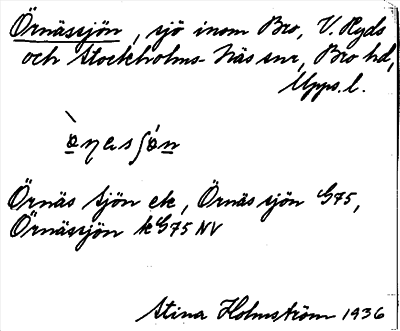 Örnässjön, sjö inom Bro, V. Ryds
och Stockholms-Näs snr, Bro hd,
Upps. l.
Örnäs sjön ek, Örnäs sjön G75,
Örnässjön kG75 NV
Stina Holmström 1936